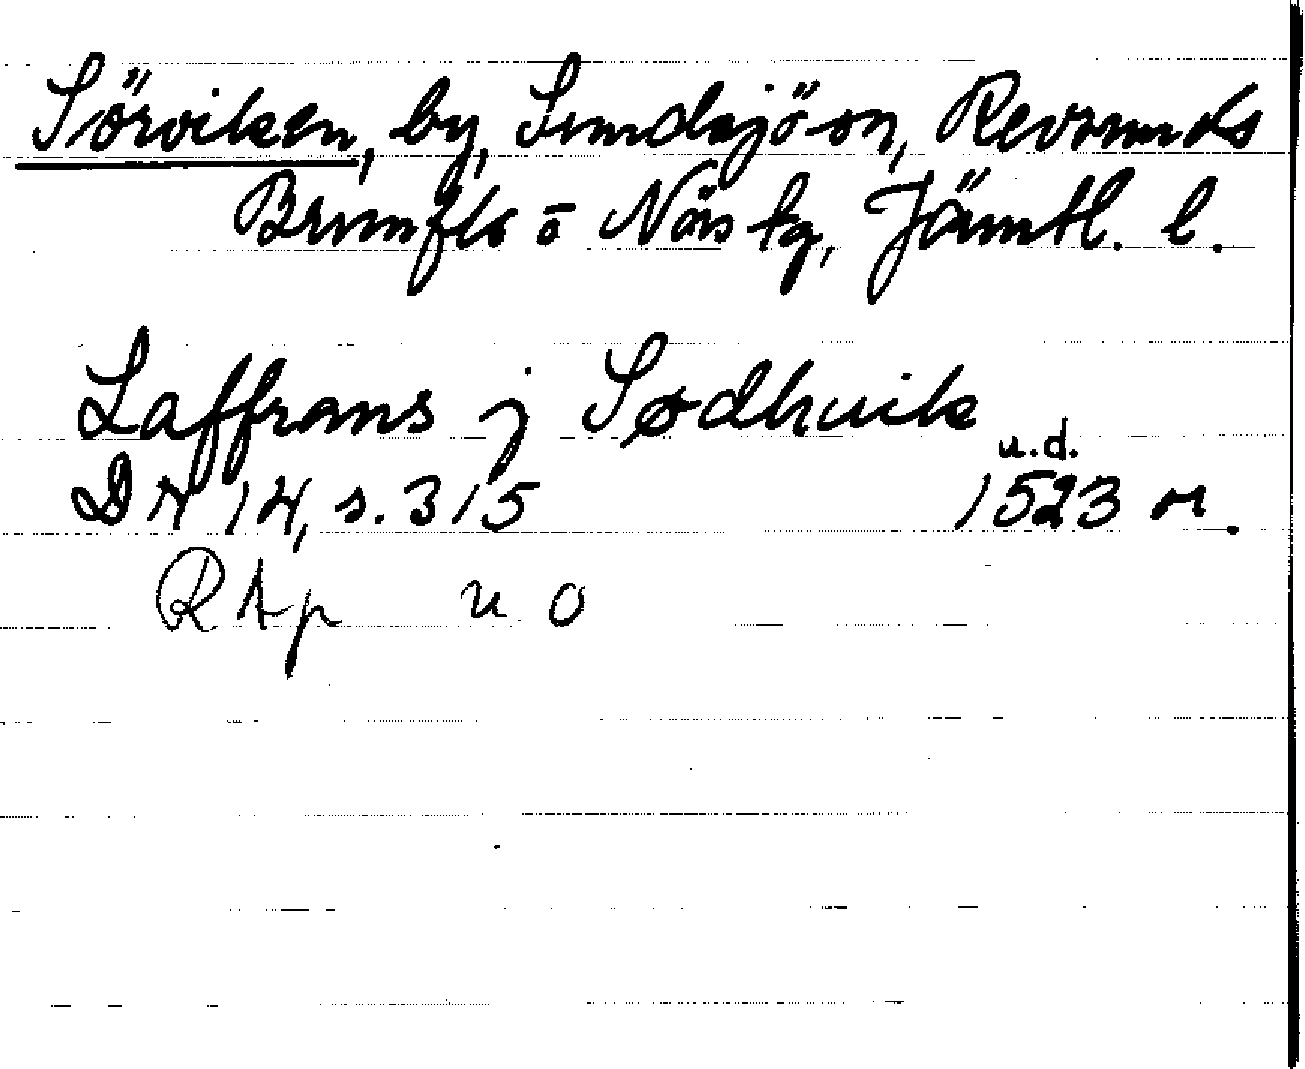 Sörviken, by, Sundsjö sn, Revsunds
Brunflo o Näs tg, Jämtl. l.
Laffrans j Sødhuik
u.d.
DN 14, s. 315 1523 or.
RAp u o